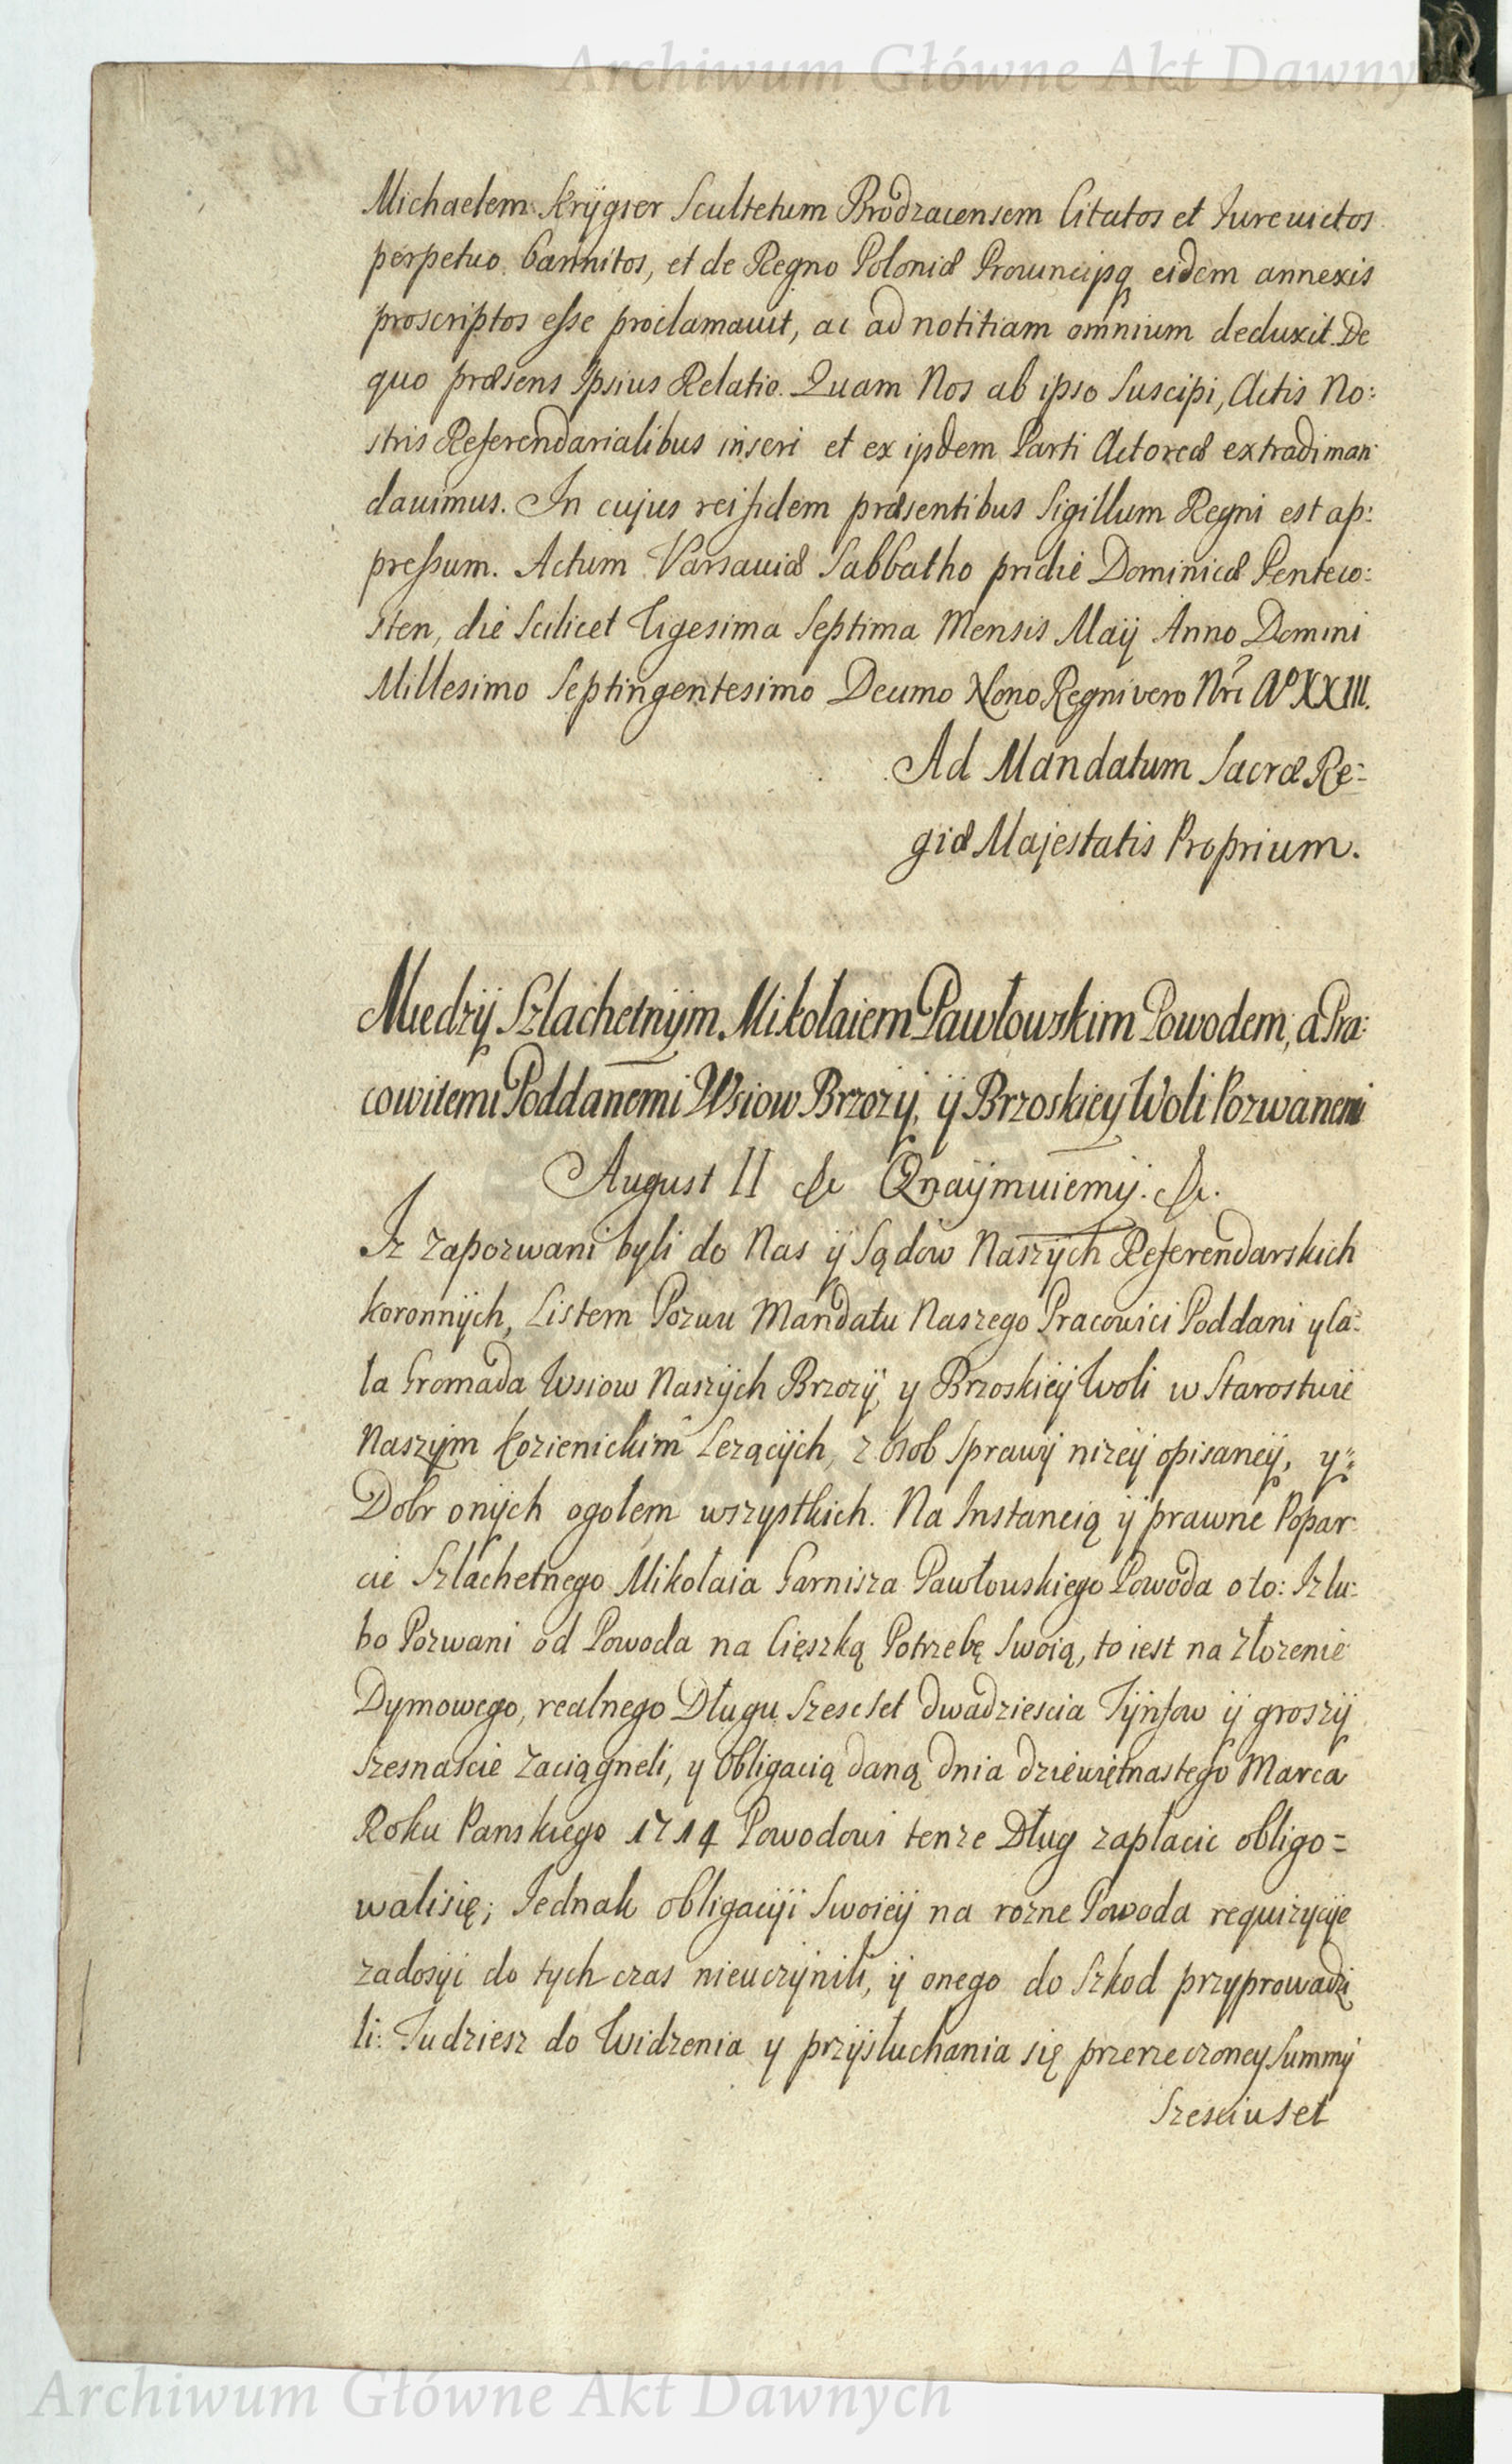 Archiwum Główne Akt Dawnych
Michaelem Kryger Scultetum Brodzacensem Citatos et Jurevictos
perpetuo bannitos, et de Regno Poloniæ Provincijsq eidem annexis
proscriptos esse proclamavit, ac ad notitiam omnium deduxit. De
quo præsens Ipsius Relatio. Quam Nos ab ipso Suscipi, Actis No:
stris Referendarialibus inseri et ex ijsdem Parti Actoreæ extradi man
davimus. In cujus rei fidem præsentibus Sigillum Regni est ap:
pressum. Actum Varsaviæ Sabbatho pridie Dominicæ Penteco:
sten, die Scilicet Vigesima Septima Mensis Maÿ Anno Domini
Millesimo Septingentesimo Decimo Nono Regni vero Nri Aº XXIII.
Ad Mandatum Sacræ Re:
giæ Majestatis Proprium.
Miedzÿ Szlachetnÿm Mikołaiem Pawłowskim Powodem, a Pra:
cowitemi Poddanemi Wsiow Brzozÿ, ÿ Brzoskieÿ Woli Pozwanemi
August II &c Oznaÿmuiemÿ. &c.
Iz zapozwani byli do Nas ÿ Sądow Naszÿch Referendarskich
koronnÿch, Listem Pozwu Mandatu Naszego Pracowici Poddani y Ca:
ła Gromada Wsiow Naszÿch Brzozÿ, y Brzoskieÿ Woli w Starostwie
Naszÿm Kozienickim Lezącÿch, z Osob Sprawÿ nizeÿ opisaneÿ, y
Dobr onÿch ogołem wszystkich. Na Instancią ÿ prawne Popar
cie Szlachetnego Mikołaia Garnisza Pawłowskiego Powoda o to: Iz lu:
bo Pozwani od Powoda na Cięszką Potrzebę Swoią, to iest na złozenie
Dymowego, realnego Długu Szescset dwadziescia Tÿnfow ÿ groszÿ
szesnascie zaciągneli, y Obligacią daną dnia dziewiętnastego Marca
Roku Panskiego 1714 Powodowi tenze Dług zapłacic obligo=
walisię; Iednak obligacÿi Swoieÿ na rozne Powoda requizycÿe
zadosÿc do tych czas nieuczÿnili, ÿ onego do Szkod przyprowadzi
li: Tudziesz do Widzenia y przÿsłuchania się przerzeczoney Summÿ
Szesciuset
Archiwum Główne Akt Dawnych